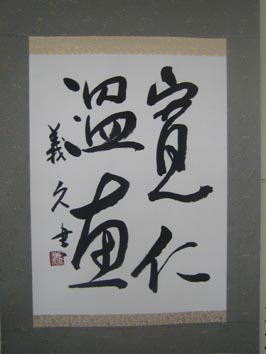 寛仁
温恵
義久書